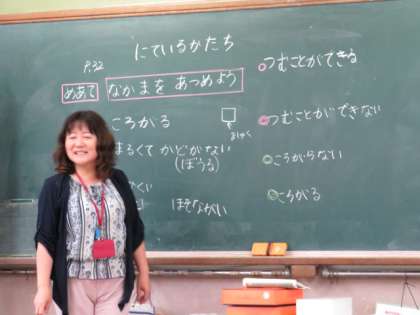 にているかたち
P.32
めあて なかまを あつめよう
ころがる
まるくて かどがない
(ぼうる)
ほそながい
つむことができる
つむことができない
ころがらない
ころがる